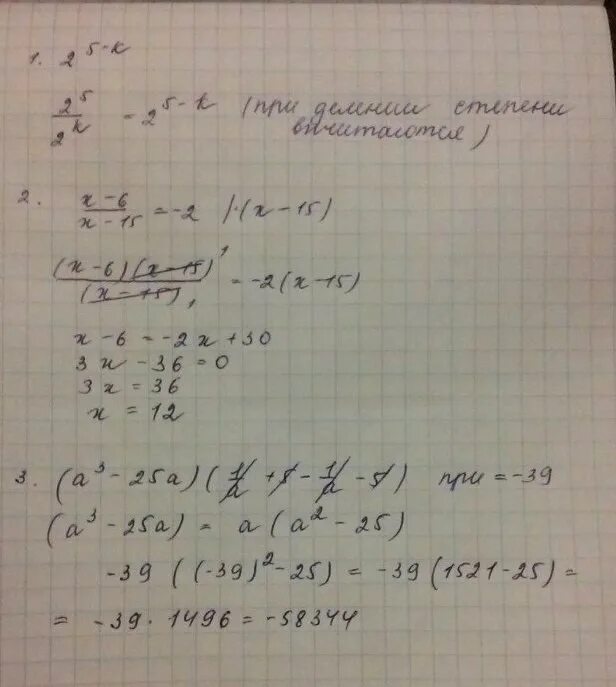 1. 2^(5-k)
2^5/2^k = 2^(5-k) (при делении степени
вычитаются)
2. (x-6)/(x-15) = -2 |·(x-15)
(x-6)(x-15)^1/(x-15)_1 = -2(x-15)
x-6 = -2x+30
3x-36=0
3x=36
x = 12
3. (a³-25a)(1/a+5-1/a-5) при = -39
(a³-25a) = a(a²-25)
-39((-39)²-25) = -39(1521-25) =
= -39·1496 = -58344